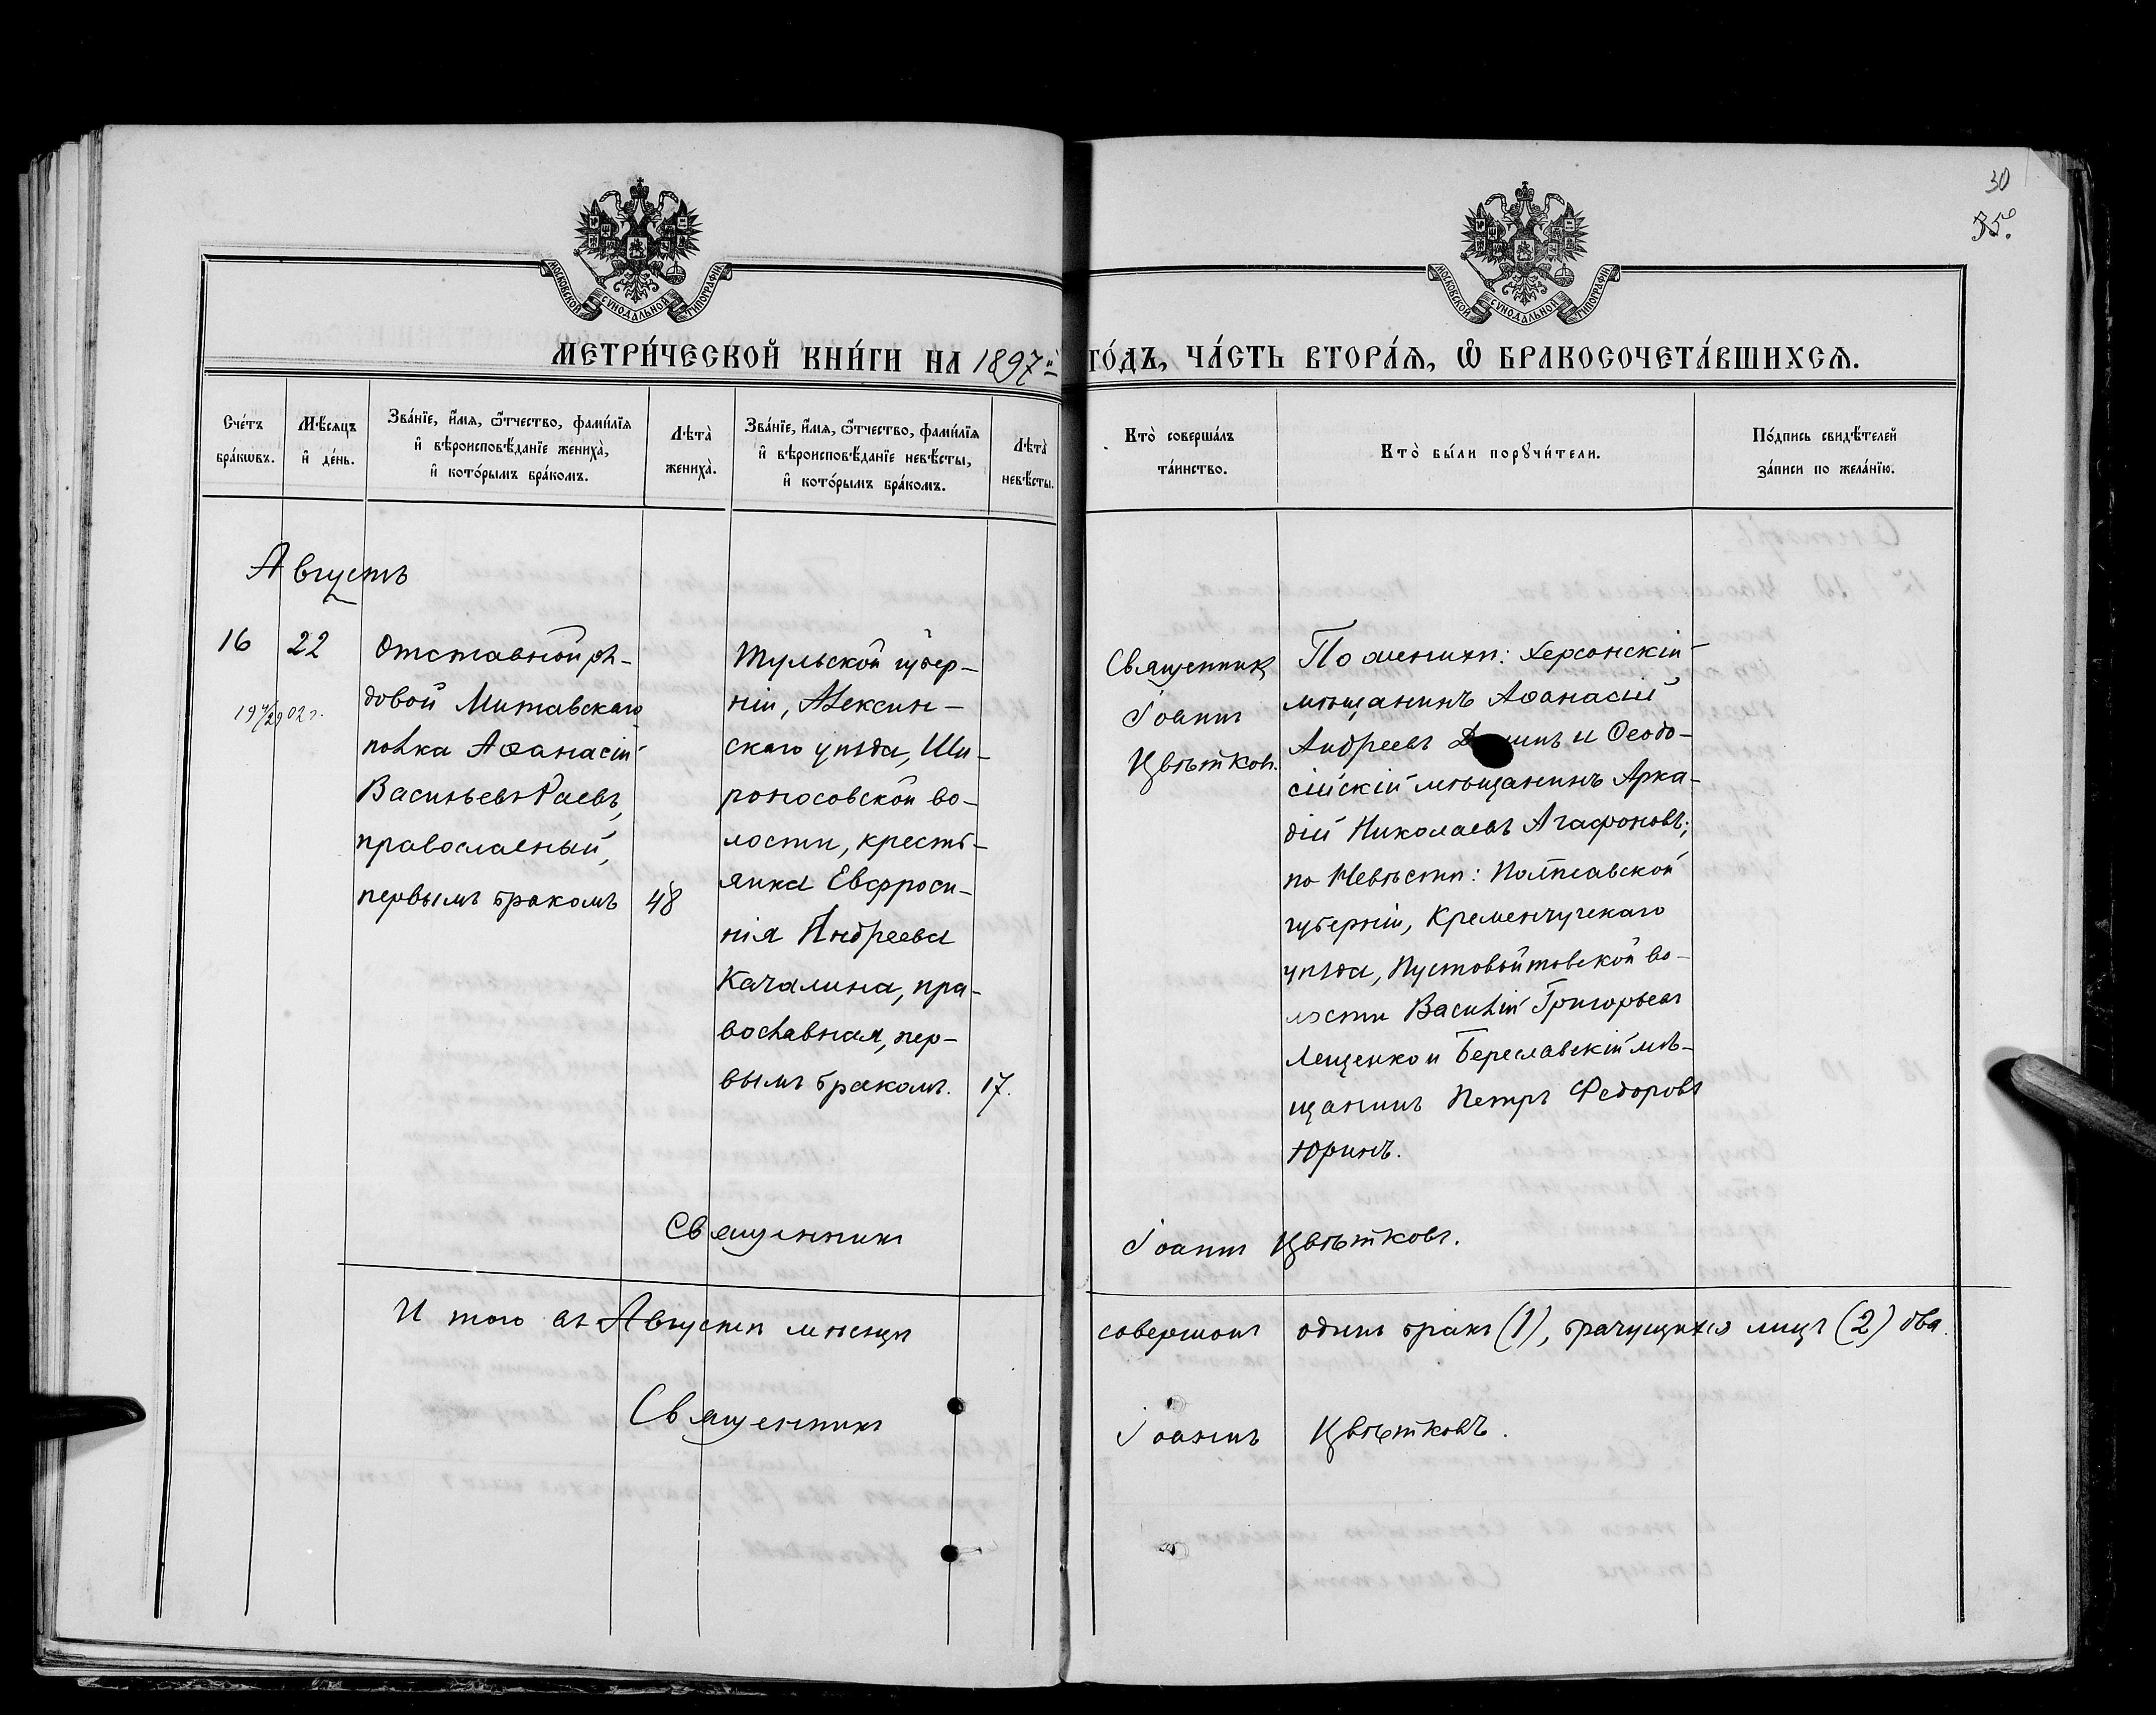 30
35.
МОСКОВСКОЙ СѴНОДАЛЬНОЙ ТИПОГРАФІИ
МОСКОВСКОЙ СѴНОДАЛЬНОЙ ТИПОГРАФІИ
МЕТРИ́ЧЕСКОЙ КНИ́ГИ НА 1897й ГО́ДЪ, ЧА́СТЬ ВТОРА́Я, Ѡ БРАКОСОЧЕТА́ВШИХСЯ.
Сче́тъ
бра́кѡвъ.
Мѣ́сяцъ
и҆ де́нь.
Зва́нїе, и҆́мя, ѻ҆́тчество, фами́лїя
и҆ вѣроисповѣ́данїе жениха̀,
и҆ кото́рымъ бра́комъ.
Лѣта̀
жениха̀.
Зва́нїе, и҆́мя, ѻ҆́тчество, фами́лїя
и҆ вѣроисповѣ́данїе невѣ́сты,
и҆ кото́рымъ бра́комъ.
Лѣта̀
невѣ́сты.
Кто̀ соверша́лъ
та́инство.
Кто̀ бы́ли порꙋчи́тели.
По́дпись свидѣ́телей
за́писи по жела́нїю.
Августъ
16
22
19 4/29 02 г.
Отставной ря-
довой Митавскаго
полка Аѳанасій
Васильевъ Раевъ,
православный,
первымъ бракомъ
48
Тульской губер-
ніи, Алексин-
скаго уѣзда, Ши-
роносовской во-
лости, кресть-
янка Евфроси-
нія Андреева
Качалина, пра-
вославная, пер-
вымъ бракомъ.
17.
Священникъ
Іоаннъ
Цвѣтковъ.
По женихѣ: Херсонскій
мѣщанинъ Аѳанасій
Андреевъ и Ѳеодо-
сійскій мѣщанинъ Арка-
дій Николаевъ Агафоновъ;
по невѣстѣ: Полтавской
губерніи, Кременчугскаго
уѣзда, Пустовойтовской во-
лости Василій Григорьевъ
Лещенко и Бериславскій мѣ-
щанинъ Петръ Федоровъ
Юринъ.
Священникъ Іоаннъ Цвѣтковъ.
Итого въ Августѣ мѣсяцѣ совершонъ одинъ бракъ (1), брачущихся лицъ (2) два.
Священникъ Іоаннъ Цвѣтковъ.